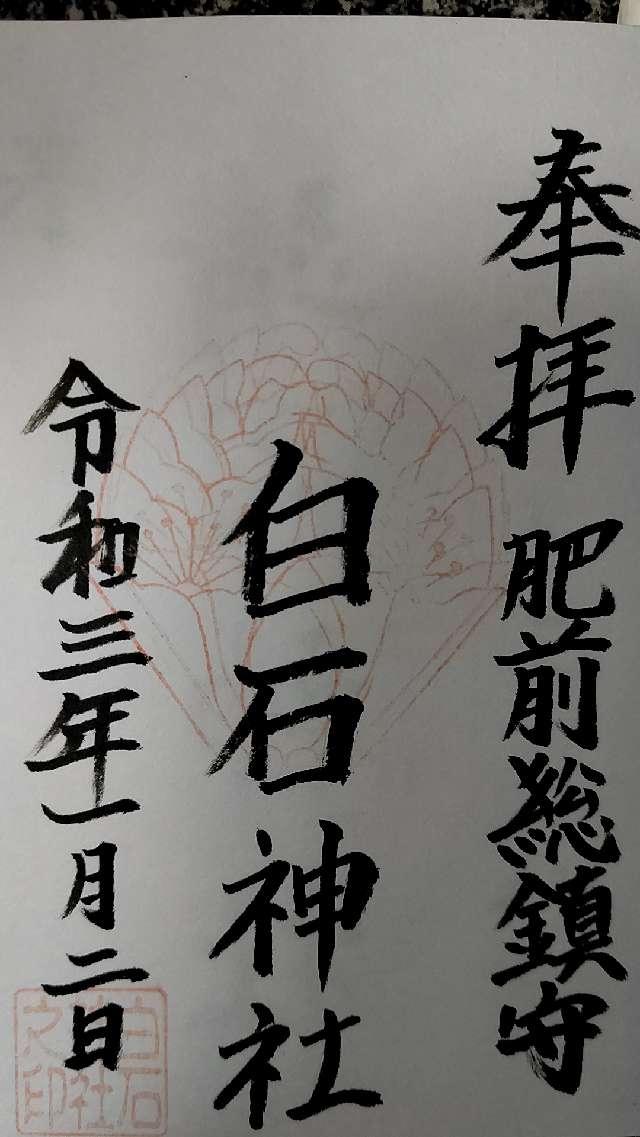 奉拝 肥前総鎮守
白石神社
令和三年一月二日
白石
神社
之印